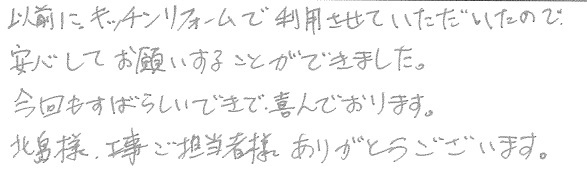 以前に、キッチンリフォームで利用させていただいたので、
安心してお願いすることができました。
今回もすばらしいできで、喜んでおります。
北畠様、工事ご担当者様ありがとうございます。